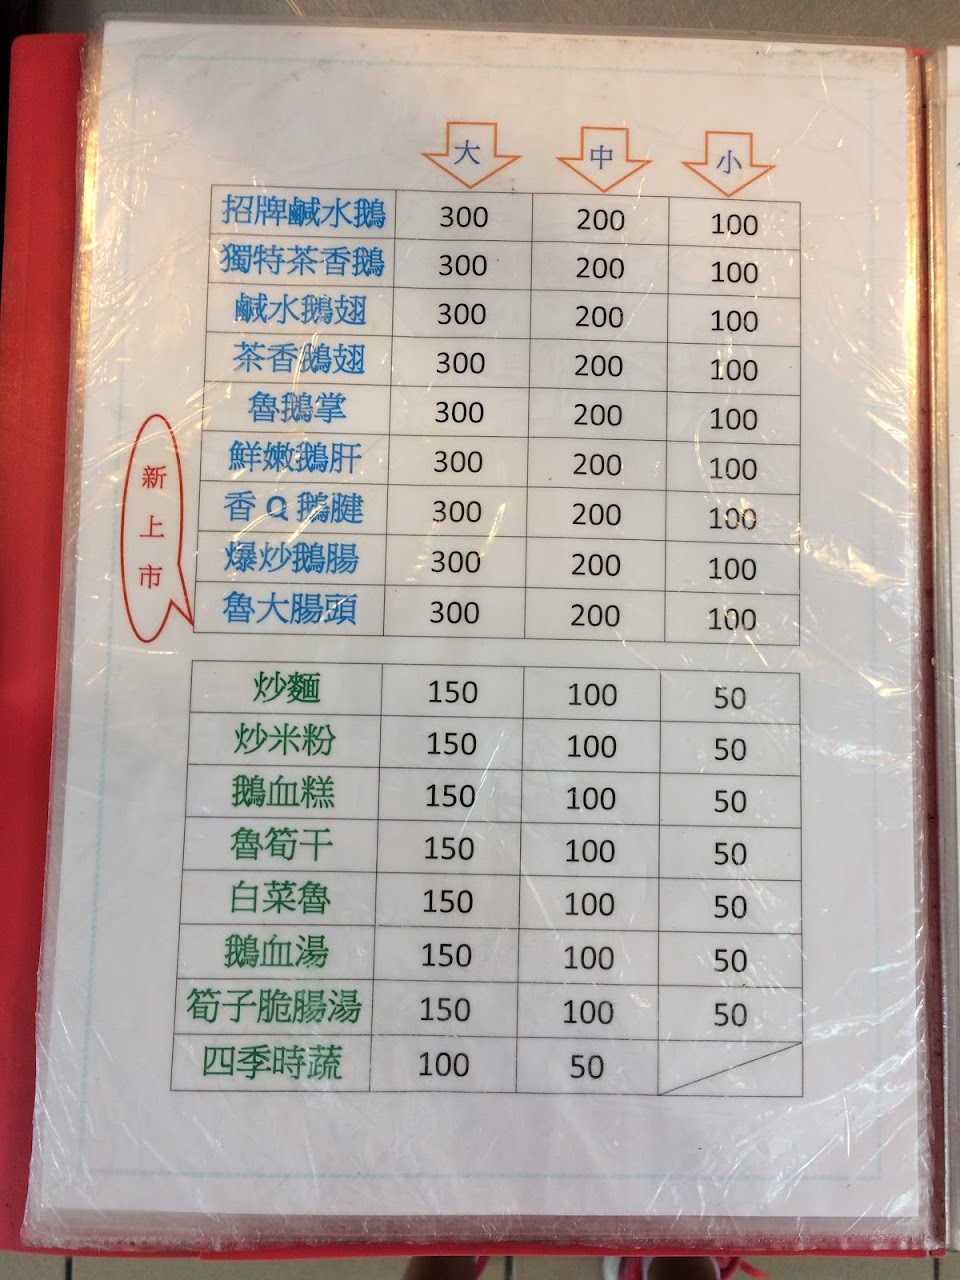 大 中 小
招牌鹹水鵝 300 200 100
獨特茶香鵝 300 200 100
鹹水鵝翅 300 200 100
茶香鵝翅 300 200 100
魯鵝掌 300 200 100
鮮嫩鵝肝 300 200 100
香Q鵝腱 300 200 100
爆炒鵝腸 300 200 100
新上市
魯大腸頭 300 200 100
炒麵 150 100 50
炒米粉 150 100 50
鵝血糕 150 100 50
魯筍干 150 100 50
白菜魯 150 100 50
鵝血湯 150 100 50
筍子脆腸湯 150 100 50
四季時蔬 100 50